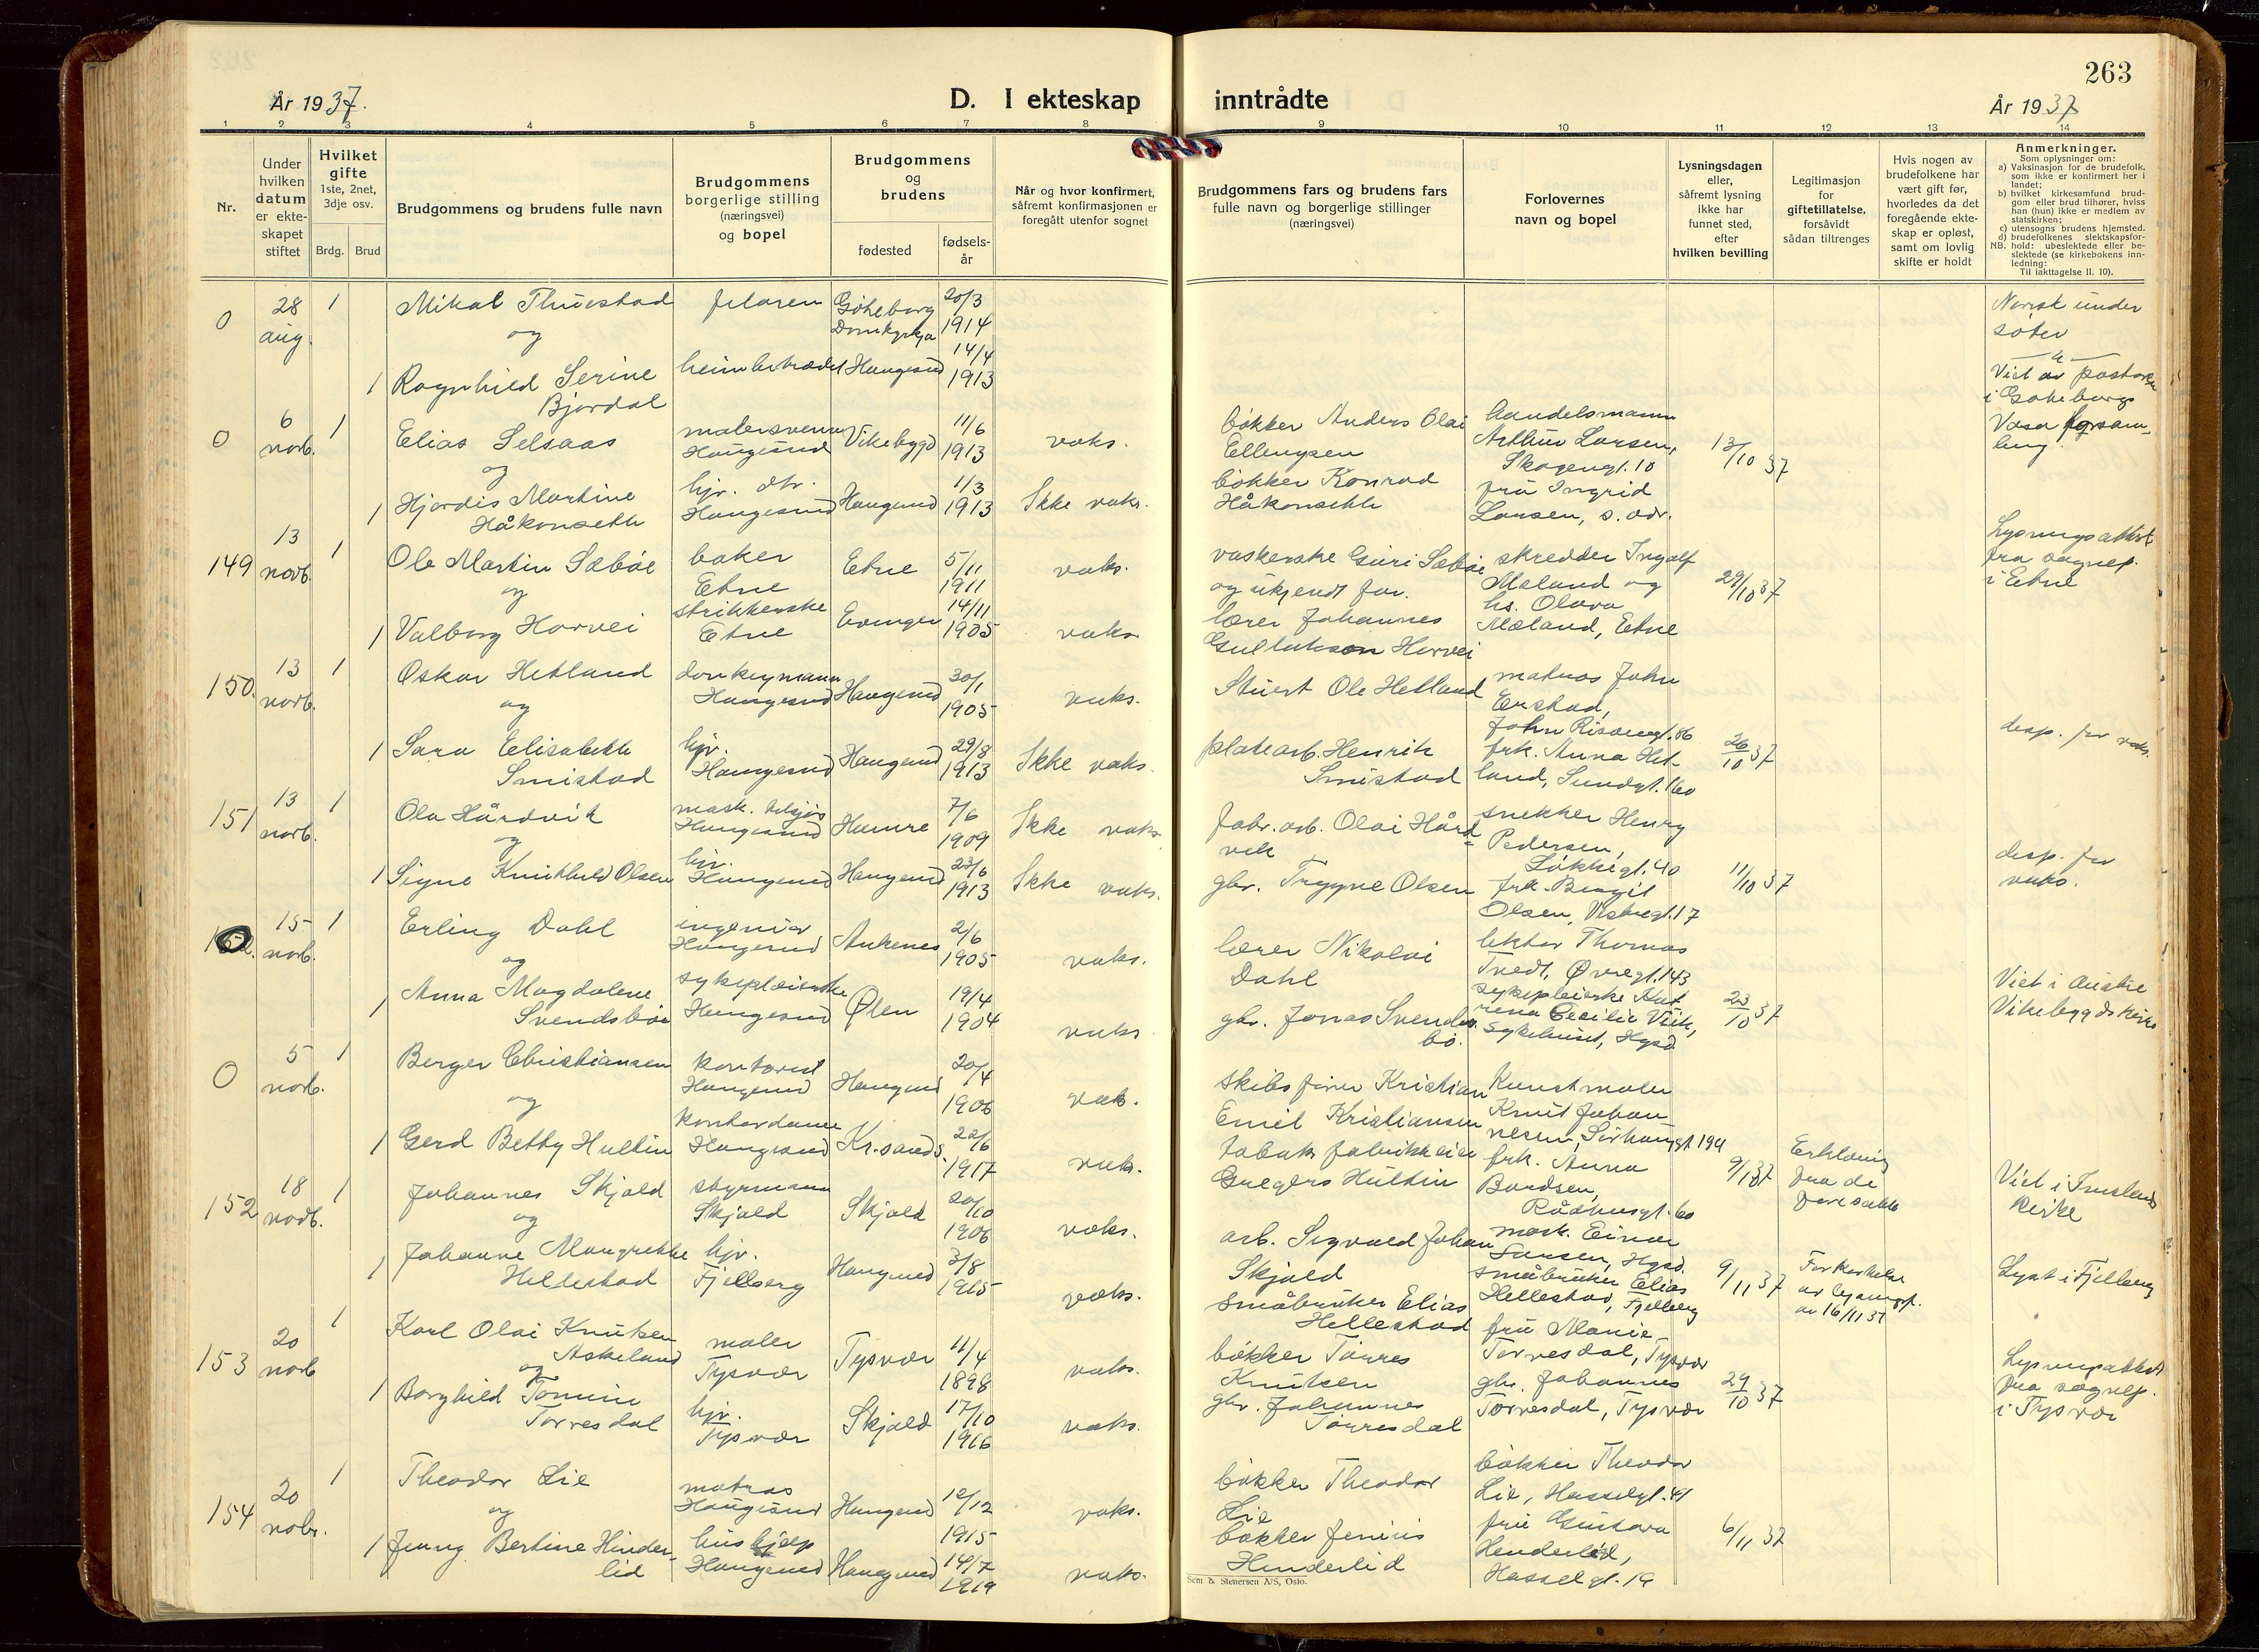 263
År 1937.
D. I ekteskap inntrådte
År 1937
1 2 3 4 5 6 7 8 9 10 11 12 13 14
Nr.
Under
hvilken
datum
er ekte-
skapet
stiftet
Hvilket
gifte
1ste, 2net,
3dje osv.
Brdg. Brud
Brudgommens og brudens fulle navn
Brudgommens
borgerlige stilling
(næringsvei)
og bopel
Brudgommens
og
brudens
fødested
fødsels-
år
Når og hvor konfirmert,
såfremt konfirmasjonen er
foregått utenfor sognet
Brudgommens fars og brudens fars
fulle navn og borgerlige stillinger
(næringsvei)
Forlovernes
navn og bopel
Lysningsdagen
eller,
såfremt lysning
ikke har
funnet sted,
efter
hvilken bevilling
Legitimasjon
for
giftetillatelse,
forsåvidt
sådan tiltrenges
Hvis nogen av
brudefolkene har
vært gift før,
hvorledes da det
foregående ekte-
skap er opløst,
samt om lovlig
skifte er holdt
Anmerkninger.
Som oplysninger om:
a) Vaksinasjon for de brudefolk,
som ikke er konfirmert her i
landet;
b) hvilket kirkesamfund brud-
gom eller brud tilhører, hviss
han (hun) ikke er medlem av
statskirken;
c) utensogns brudens hjemsted.
d) brudefolkenes slektskapsfor-
NB. hold: ubeslektede eller be-
slektede (se kirkebokens inn-
ledning:
Til iakttagelse II. 10).
0
28
aug.
1
Mikal Thuestad
og
Göteborg
Domkyrkja
20/3
1914
Norsk under
såter
1 Ragnhild Serine
Bjordal
Haugesund
14/4
1913
Viet av pastor
i Göteborgs
Vasa forsam-
ling.
0
6
novb.
1
Elias Selsaas
og
malersvenn
Haugesund
Vikebygd
11/6
1913
vaks.
bökker Anders Olai
Ellengsen
handelsmann
Arthur Larsen,
Skogengt. 10
13/10 37
1 Hjordis Martine
Håkonseth
hjv. dtr.
Haugesund
Haugesund
1/3
1913
Ikke vaks.
bökker Konrad
Håkonseth
fru Ingrid
Larsen, s. adr.
149
13
novb.
1
Ole Martin Sæböe
og
baker
Etne
Etne
5/11
1911
vaks.
vaskerske Guri Sæböe
og ukjendt far.
skredder Ingolf
Mæland og
hs. Olava
Mæland, Etne
29/10 37
Lysningsattest
fra sognep.
i Etne
1 Valborg Horvei
strikkerske
Etne
Evanger
14/11
1905
vaks
lærer Johannes
Gullakson Horvei
150.
13
novb.
1
Oskar Hetland
og
donkeymann
Haugesund
Haugesund
30/1
1905
vaks.
Stuert Ole Hetland
matros John
Erstad,
John Risöengt. 86
1 Sara Elisabeth
Smistad
hjv.
Haugesund
Haugesund
29/8
1913
Ikke vaks.
platearb. Henrik
Smistad
frk. Anna Het-
land, Sundgt. 160
26/10 37
desp. for vaks.
151
13
novb.
1
Ola Hårdvik
og
Haugesund
Hamre
7/6
1909
Ikke vaks
fabr. arb. Olai Hård-
vik
snekker Henry
Pedersen,
Lökkegt. 40
1 Signe Knuthild Olsen
hjv.
Haugesund
Haugesund
23/6
1913
Ikke vaks.
gbr. Trygve Olsen
frk. Bergit
Olsen, Vestregt. 17
11/10 37
desp. for
vaks.
152.
15
novb.
1
Erling Dahl
og
ingeniör
Haugesund
Ankenes
2/6
1905
vaks.
lærer Nikolai
Dahl
lektor Thomas
Tvedt, Øvregt. 143
1 Anna Magdalene
Svendsböe
sykepleierske
Haugesund
Ølen
19/4
1904
vaks
gbr. Jonas Svends-
bö.
sykepleierske Kat-
rina Cecilie Viik,
Sykehuset, Hgsd.
23/10 37
Viet i Austre
Vikebygds kirke
0
5
novb.
1
Berger Christiansen
og
kontorist
Haugesund
Haugesund
20/4
1906
vaks.
skibsförer Kristian
Emil Kristiansen
Kunstmaler
Knut Johan-
nesen, Sörhauggt 194
1 Gerd Betty Hultin
kontordame
Haugesund
Kr.sands.
22/6
1917
vaks.
tobaks fabrikkeier
Gregers Hultin
frk. Anna
Bardsen,
Rådhusgt. 60
Erklæring
fra de
foresatte
Viet i Imsland
kirke
152
18
novb.
1
Johannes Skjold
og
styrmann
Skjold
Skjold
20/10
1906
vaks.
arb. Sigvald Johan
Skjold
mask. Einar
Hgsd.
1 Johanne Margrethe
Hellestad
hjv.
Fjellberg
Haugesund
3/8
1915
vaks.
småbruker Elias
Hellestad
småbruker Elias
Hellestad, Fjellberg
9/11 37
av 16/11 37
Lyst i Fjellberg
153
20
novb
1
Karl Olai Knutsen
Askeland
og
maler
Tysvær
Tysvær
11/4
1898
vaks.
bökker Törres
Knutsen
fru Marie
Torvesdal, Tysvær
1 Borghild Tomine
Torvesdal
hjv.
Tysvær
Skjold
17/10
1916
vaks.
gbr. Johannes
Torvesdal
gbr. Johannes
Torvesdal, Tysvær
29/10 37
Lysningsattest
fra sognep.
i Tysvær
154
20
novbr.
1
Theodor Lie
og
matros
Haugesund
Haugesund
12/12
1915
vaks.
bökker Theodor
Lie
bökker Theodor
Lie, Hasselgt. 41
1 Jenny Bertine Hinder-
lid
hushjelp
Haugesund
Haugesund
14/7
1919
vaks.
bökker
Hinderlid
fru Gustava
Henderlid,
Hasselgt. 19
6/11 37
Sem & Stenersen A/S, Oslo.